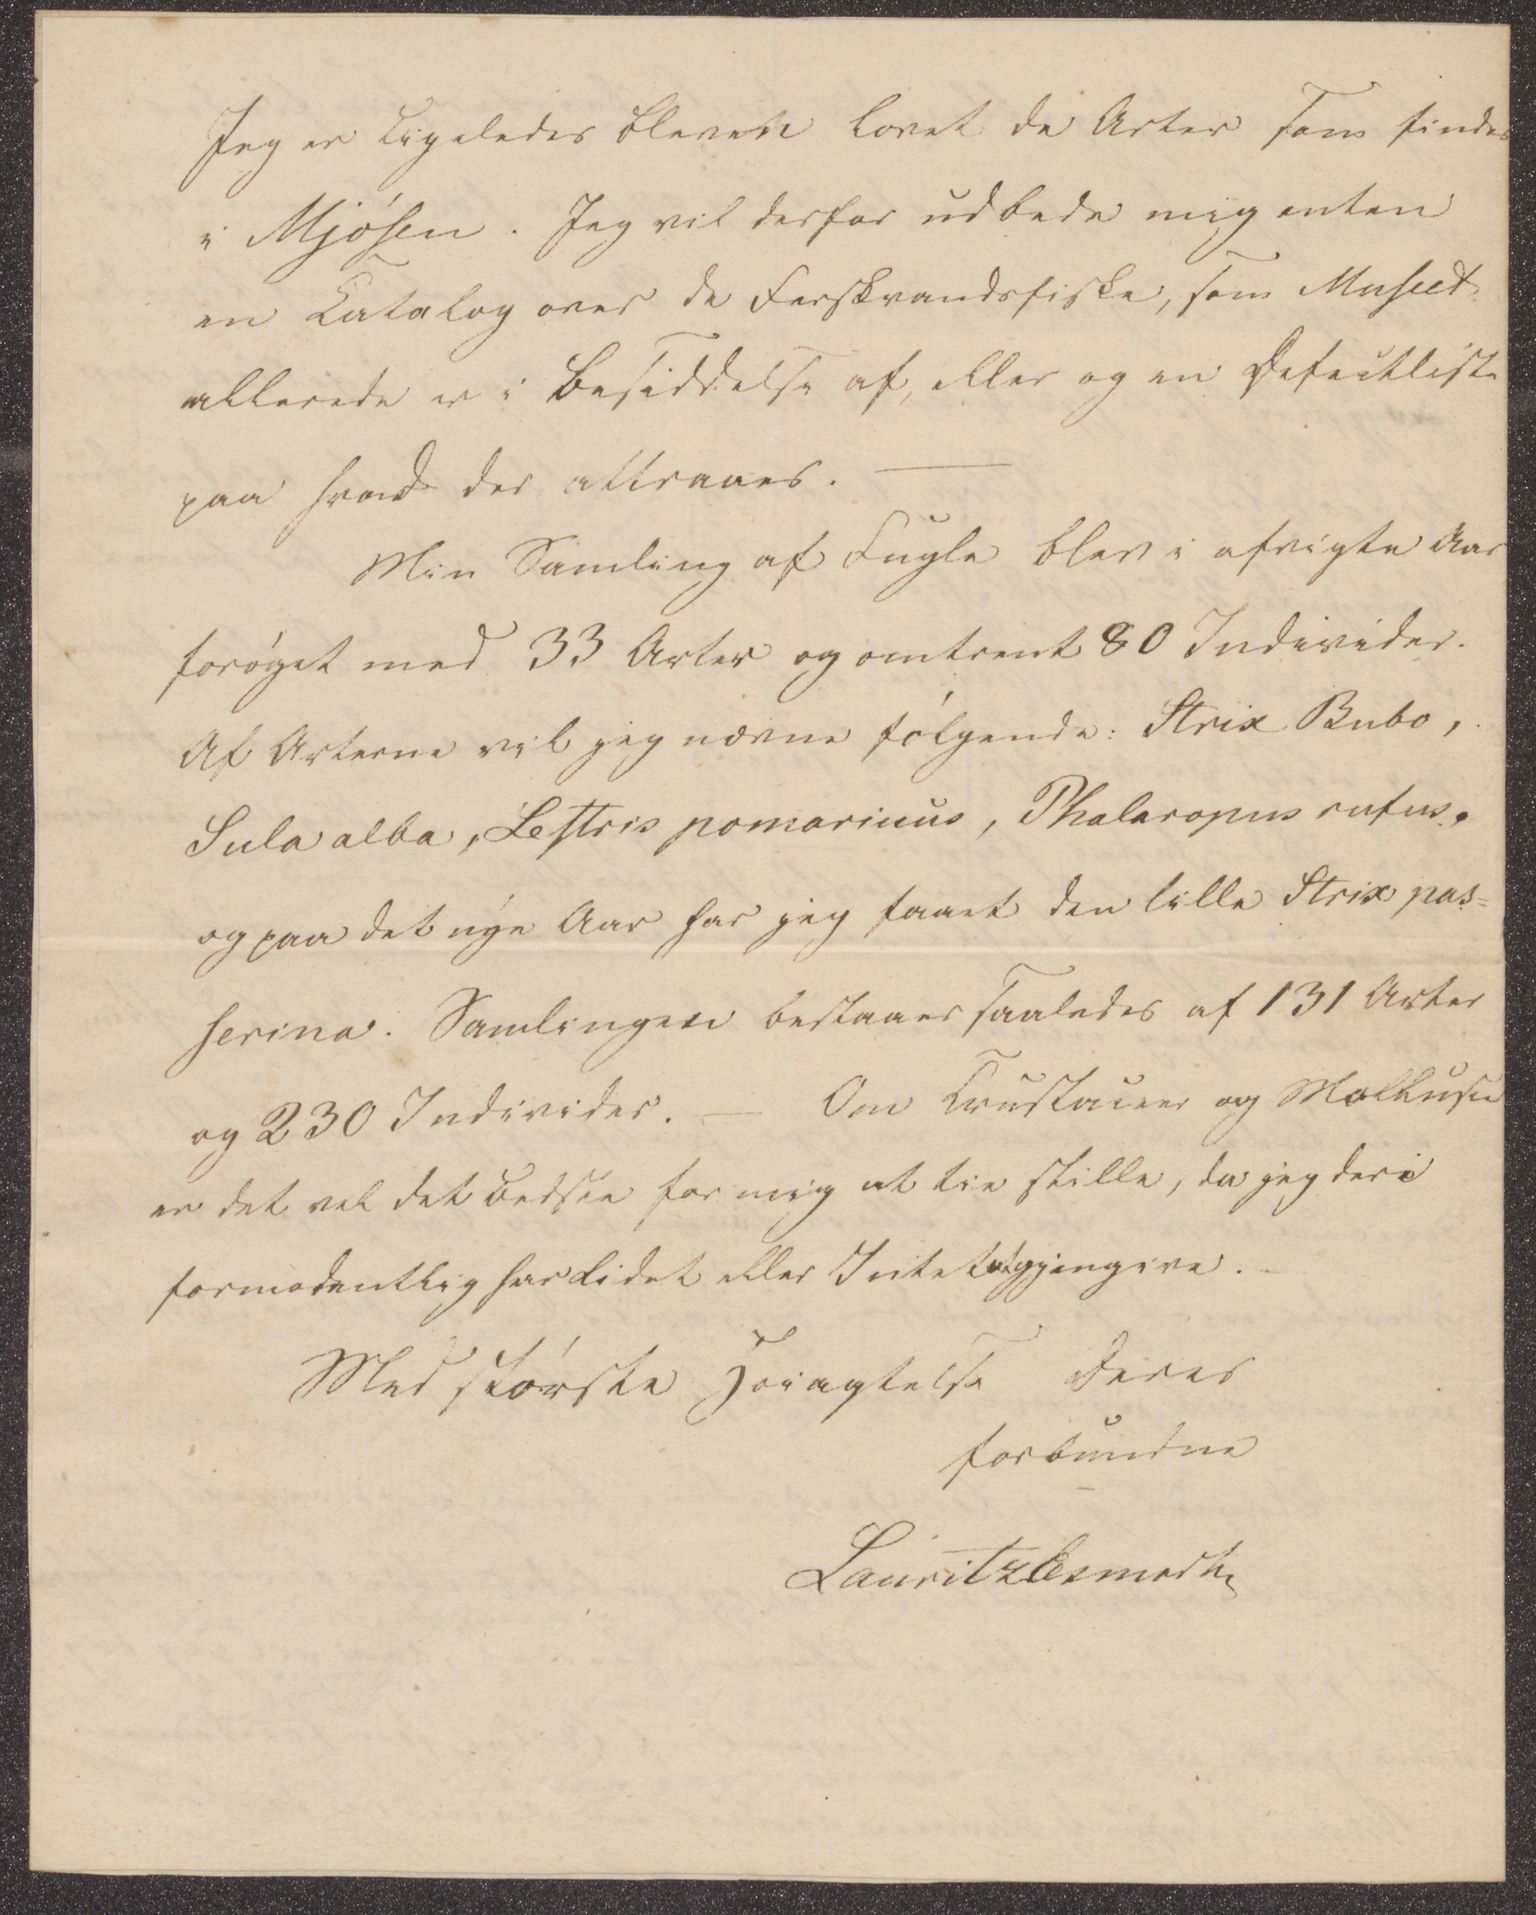 Jeg er ligeledes bleven lovet de Arter som findes
i Mjósen. Jeg vil derfor udbede mig enten
en Catalog over de Ferskvandsfiske, som Museet
allerede er i Besiddelse af, eller og en Defectliste
paa hvad der attraaes. —
Min Samling af Fugle blev i afvigte Aar
forøget med 33 Arter og omtrent 80 Individer.
Af Arterne vil jeg nævne følgende: Strix Bubo,
Sula alba, Lestris pomarinus, Phalaropus rufus.
og paa det nye Aar har jeg faaet den lille Strix pas=
serina. Samlingen bestaaer saaledes af 131 Arter
og 230 Individer. — Om Crustaceer og Mollusce
er det vel det bedste for mig at tie stille, da jeg deri
formodentlig har Lidet eller Intet at gjengive. -
Med største Høiagtelse Deres
forbundne
Lauritz Esmark